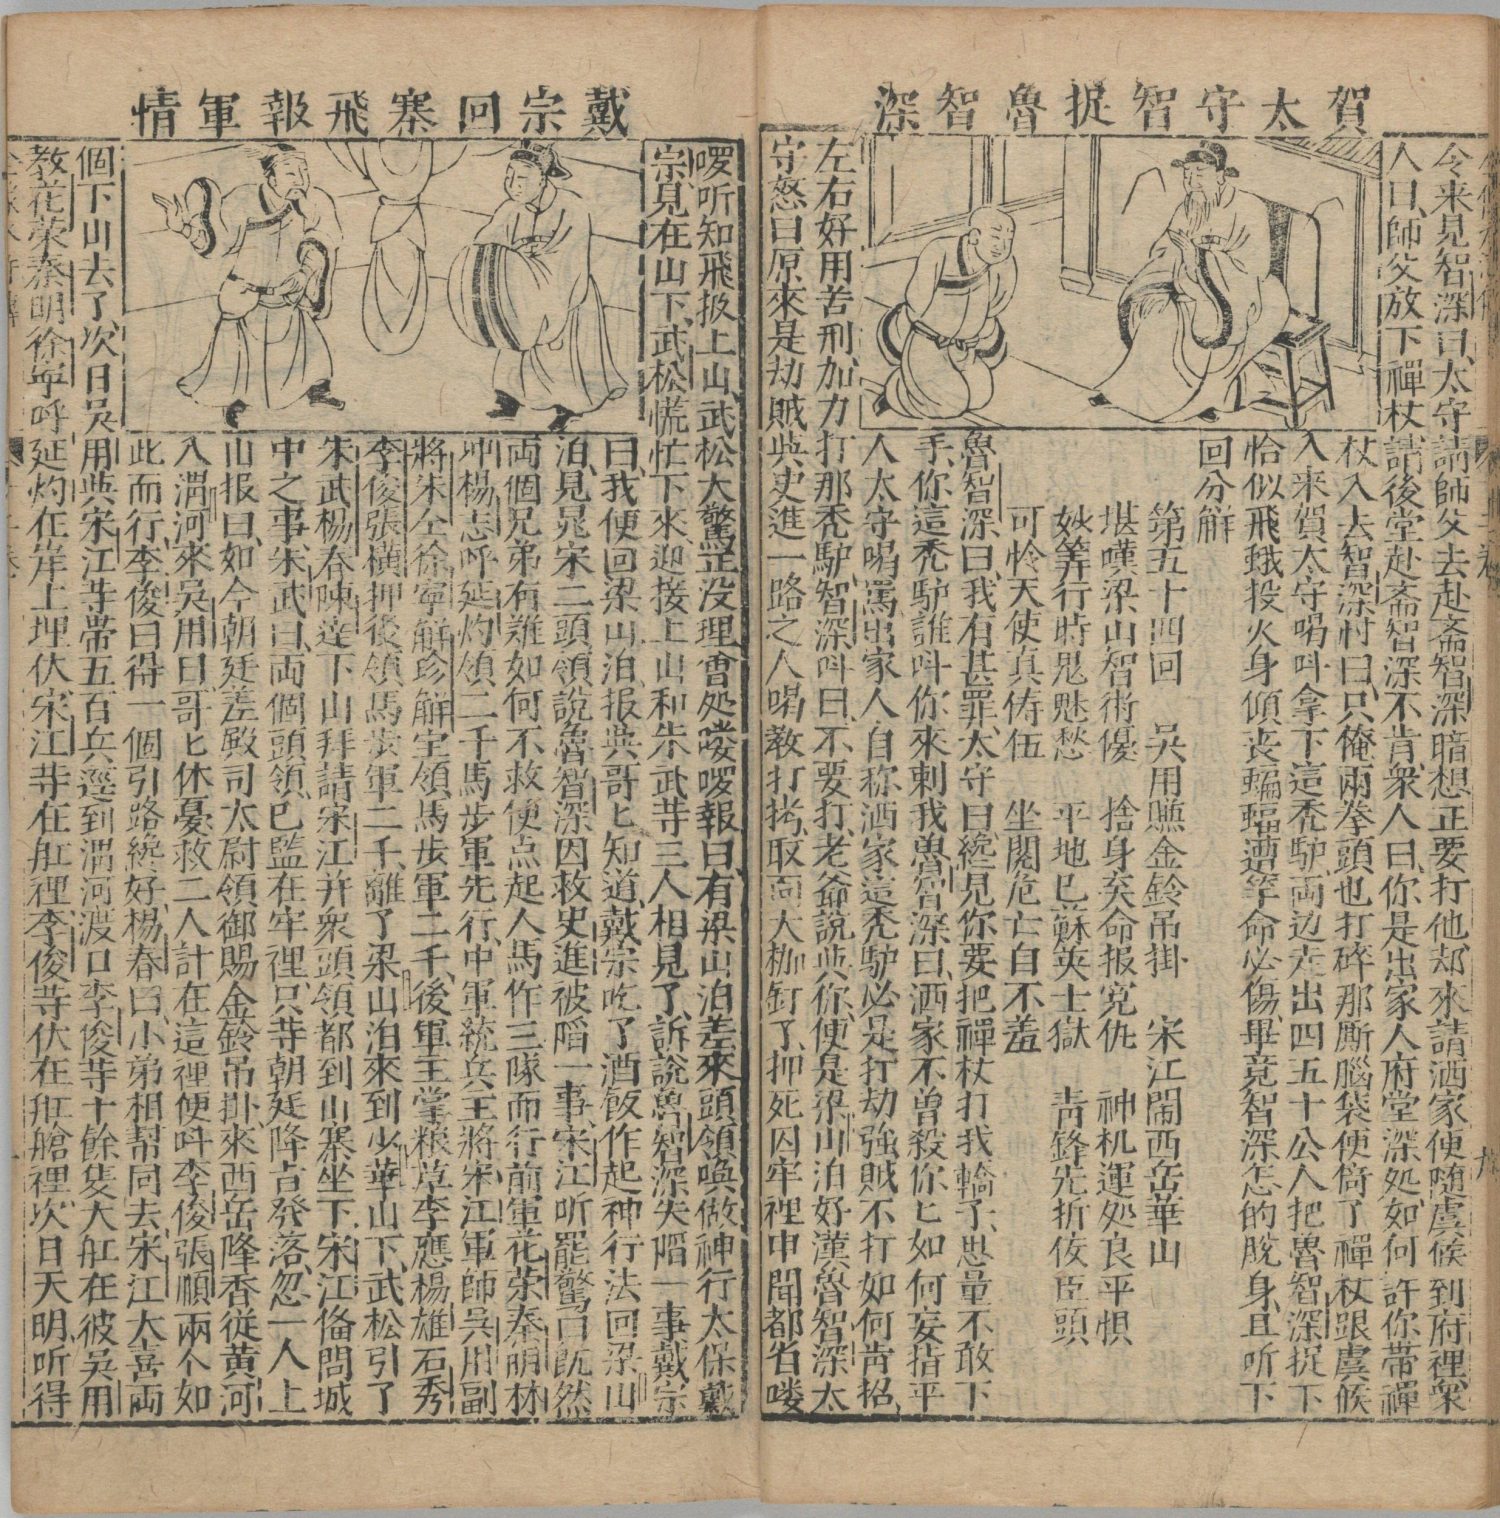 賀太守智捉魯智深
今来見智深曰太守請師父去赴斎智深暗想正要打他却來請洒家便随虞候到府裡衆
人曰師父放下禪杖請後堂赴斎智深不肯衆人曰你是出家人府堂深処如何許你帶禪
杖入去智深忖曰只俺兩拳頭也打碎那厮腦袋便倚了禪杖跟虞候
入来賀太守喝呌拿下這秃驴両边走出四五十公人把魯智深捉下
恰似飛蛾投火身傾丧蝙蝠遭竿命必傷畢竟智深怎的脫身且听下
回分解
第五十四回　吳用賺金鈴吊掛　宋江鬧西岳華山
堪嘆梁山智術優　捨身矣命报寃仇　神机運処良平惧
妙筭行時鬼魅愁　平地已蘇英士獄　青鋒先折佞臣頭
可怜天使真俦伍　坐閱危亡自不羞
魯智深曰我有甚罪太守曰纔見你要把禪杖打我轎子思量不敢下
手你這秃驴誰呌你來刺我魯智深曰洒家不曽殺你匕如何妄指平
人太守喝罵出家人自称洒家這秃驴必是打劫強賊不打如何肯招
左右好用苦刑加力打那秃驴智深呌曰不要打老爺說與你便是梁山泊好漢魯智深太
守怒曰原來是劫賊與史進一路之人喝教打拷取面大枷釘了押死囚牢裡中聞都省喽
戴宗回寨飛報軍情
啰听知飛报上山武松大驚正没理會処喽啰報曰有梁山泊差來頭領喚做神行太保戴
宗見在山下武松慌忙下來迎接上山和朱武䓁三人相見了訴說魯智深失陷一事戴宗
曰我便回梁山泊报與哥匕知道戴宗吃了酒飯作起神行法回梁山
泊見晁宋二頭領說魯智深因救史進被陷一事宋江听罷驚曰既然
両個兄弟有難如何不救便点起人馬作三隊而行前軍花荣秦明林
冲楊志呼延灼領二千馬步軍先行中軍統兵主將宋江軍師吳用副
將朱仝徐寧觧珍觧宝領馬步軍二千後軍主掌粮草李應楊雄石秀
李俊張横押後領馬步軍二千離了梁山泊來到少華山下武松引了
朱武楊春陳達下山拜請宋江并衆頭領都到山寨坐下宋江俻問城
中之事朱武曰両個頭領已監在牢裡只䓁朝廷降㫖發落忽一人上
山报曰如今朝廷差殿司太尉領御賜金鈴吊掛來西岳降香從黄河
入渭河來吳用曰哥匕休憂救二人計在這裡便呌李俊張順兩个如
此而行李俊曰得一個引路纔好楊春曰小弟相幇同去宋江大喜両
個下山去了次日吳用與宋江䓁帶五百兵逕到渭河渡口李俊䓁十餘隻大舡在彼吳用
教花荣秦明徐寧呼延灼在岸上埋伏宋江䓁在舡裡李俊䓁伏在舡艙裡次日天明听得